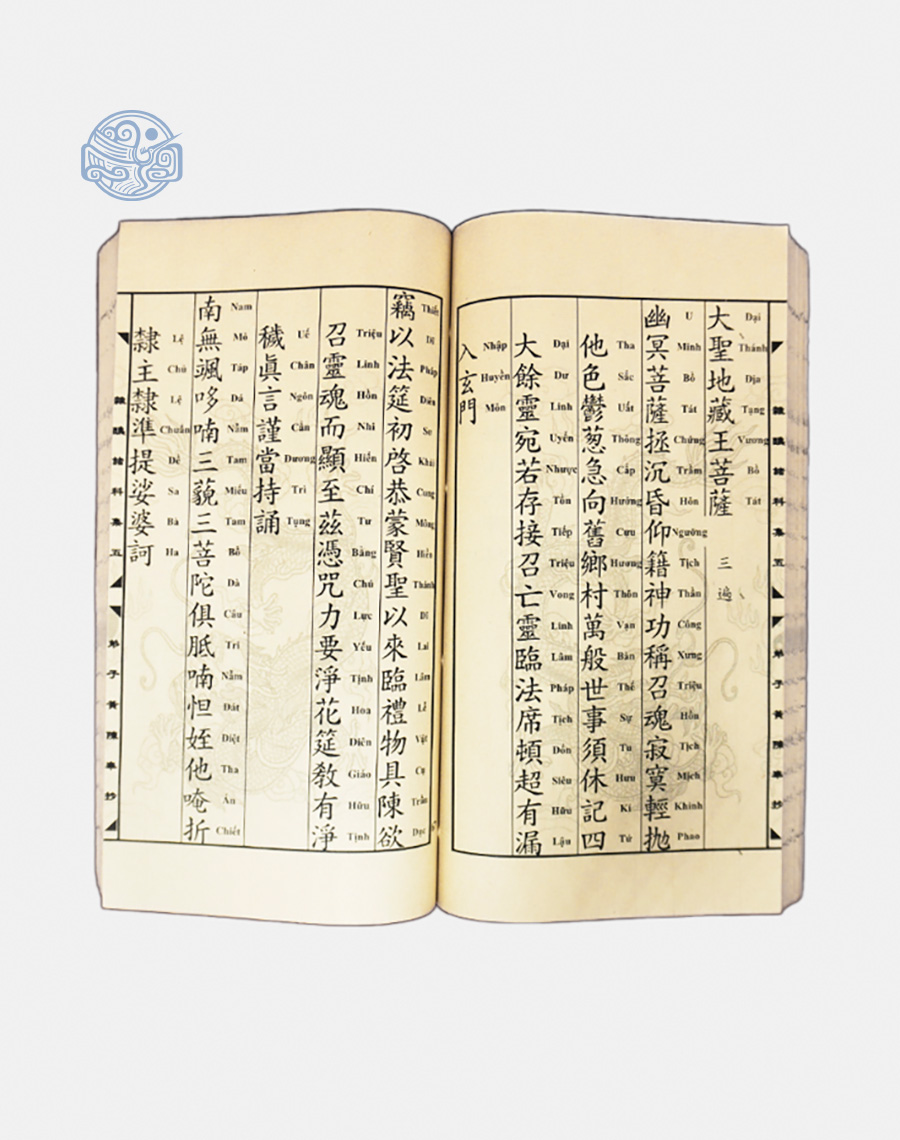 大聖地藏王菩薩 三遍
Đại Thánh Địa Tạng Vương Bồ Tát
幽冥菩薩拯沉昏仰籍神功稱召魂寂寞輕拋
U Minh Bồ Tát Chứng Trầm Hôn Ngưỡng Tịch Thần Công Xưng Triệu Hồn Tịch Mịch Khinh Phao
他色鬱葱急向舊鄉村萬般世事須休記四
Tha Sắc Uất Thông Cấp Hướng Cựu Hương Thôn Vạn Bàn Thế Sự Tu Hưu Kí Tứ
大餘靈宛若存接召亡靈臨法席頓超有漏
Đại Dư Linh Uyển Nhược Tồn Tiếp Triệu Vong Linh Lâm Pháp Tịch Đốn Siêu Hữu Lậu
入玄門
Nhập Huyền Môn
竊以法筵初啓恭蒙賢聖以來臨禮物具陳欲
Thiết Dĩ Pháp Diên Sơ Khải Cung Mông Hiền Thánh Dĩ Lai Lâm Lễ Vật Cụ Trần Dục
召靈魂而顯至茲憑咒力要淨花筵教有淨
Triệu Linh Hồn Nhi Hiển Chí Tư Bằng Chú Lực Yếu Tịnh Hoa Diên Giáo Hữu Tịnh
穢眞言謹當持誦
Uế Chân Ngôn Cẩn Đương Trì Tụng
南無颯哆喃三藐三菩陀俱胝喃怛姪他唵折
Nam Mô Táp Đá Nẫm Tam Miểu Tam Bồ Đà Câu Tri Nẫm Đát Điệt Tha Án Chiết
隸主隸準提娑婆訶
Lệ Chủ Lệ Chuẩn Đề Sa Bà Ha
諸科集五
弟子黃陳奉抄